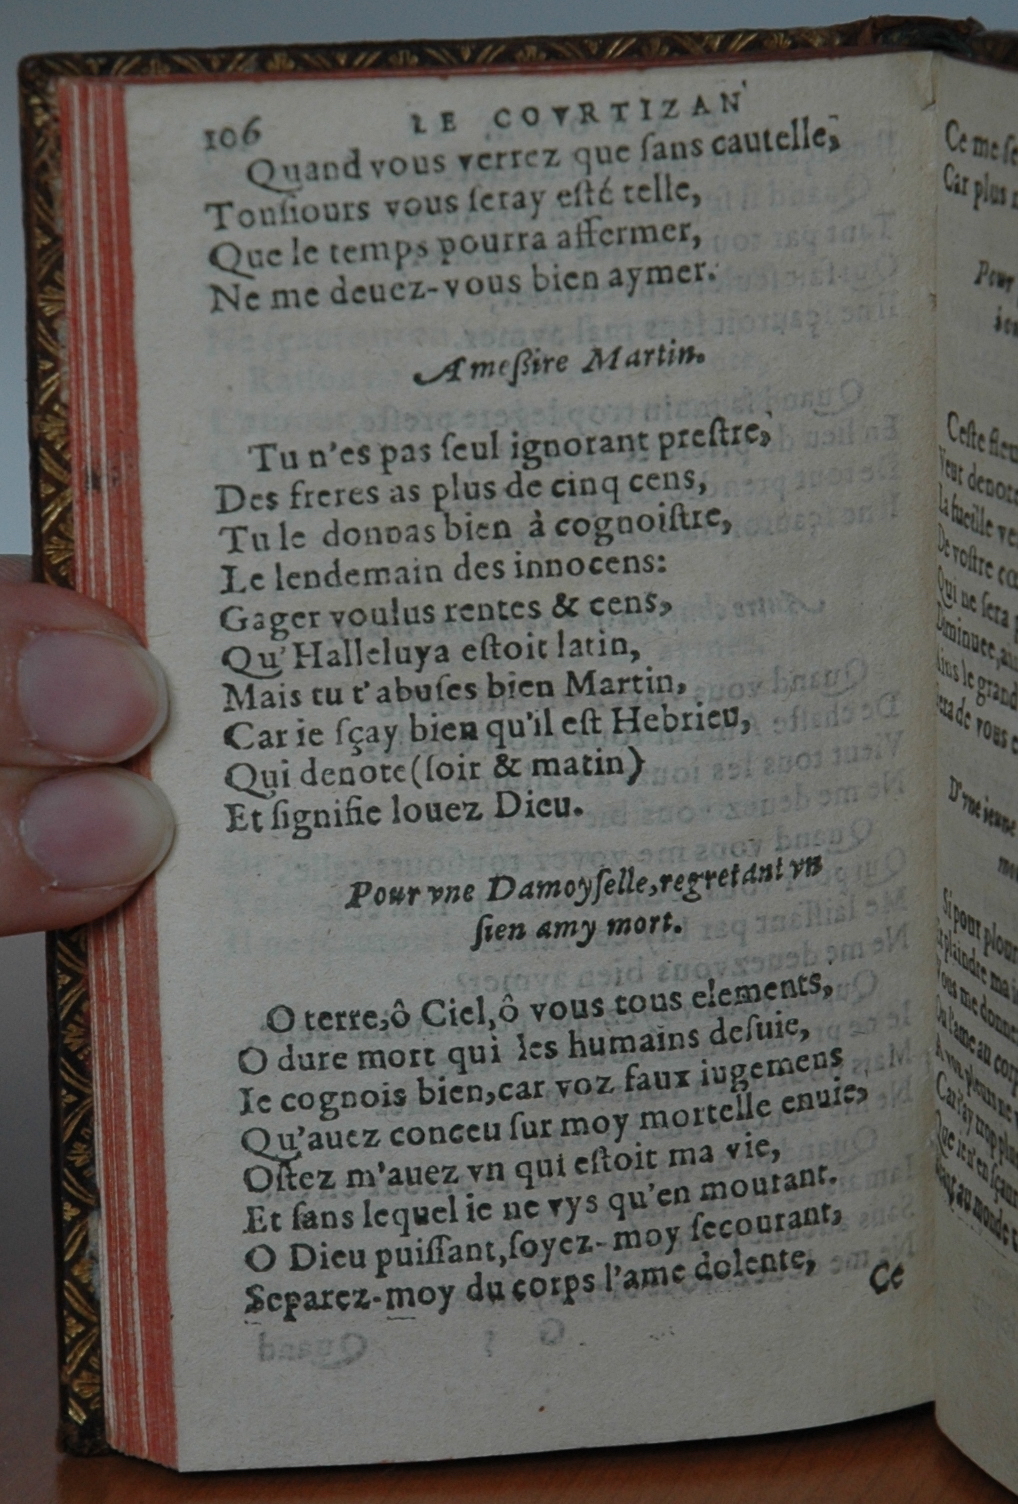 106 LE COVRTIZAN
Quand vous verrez que ſans cautelle,
Touſiours vous ſeray eſté telle,
Que le temps pourra affermer,
Ne me deuez-vous bien aymer.
A meßire Martin.
Tu n'es pas ſeul ignorant preſtre,
Des freres as plus de cinq cens,
Tu le donnas bien à cognoiſtre,
Le lendemain des innocens:
Gager voulus rentes & cens,
Qu'Halleluya eſtoit latin,
Mais tu t'abuſes bien Martin,
Car ie ſçay bien qu'il eſt Hebrieu,
Qui denote (ſoir & matin)
Et ſignifie louez Dieu.
Pour vne Damoyſelle, regretant vn
ſien amy mort.
O terre, ô Ciel, ô vous tous elements,
O dure mort qui les humains deſuie,
Ie cognois bien, car voz faux iugemens
Qu'auez conceu ſur moy mortelle enuie,
Oſtez m'auez vn qui eſtoit ma vie,
Et ſans lequel ie ne vys qu'en mourant.
O Dieu puiſſant, ſoyez-moy ſecourant,
Separez-moy du corps l'ame dolente,
Ce
Ce me ſe
Car plus
Pour
Ceſte fleu
Veut denot
La fueille ve
De voſtre cœ
Qui ne ſera
Diminuee, au
Ains le grand
Sera de vous
D'vne ieune
Si pour plour
Et plaindre ma
Vous me donne
Ou l'ame au corp
Car i'ay trop plus
au monde